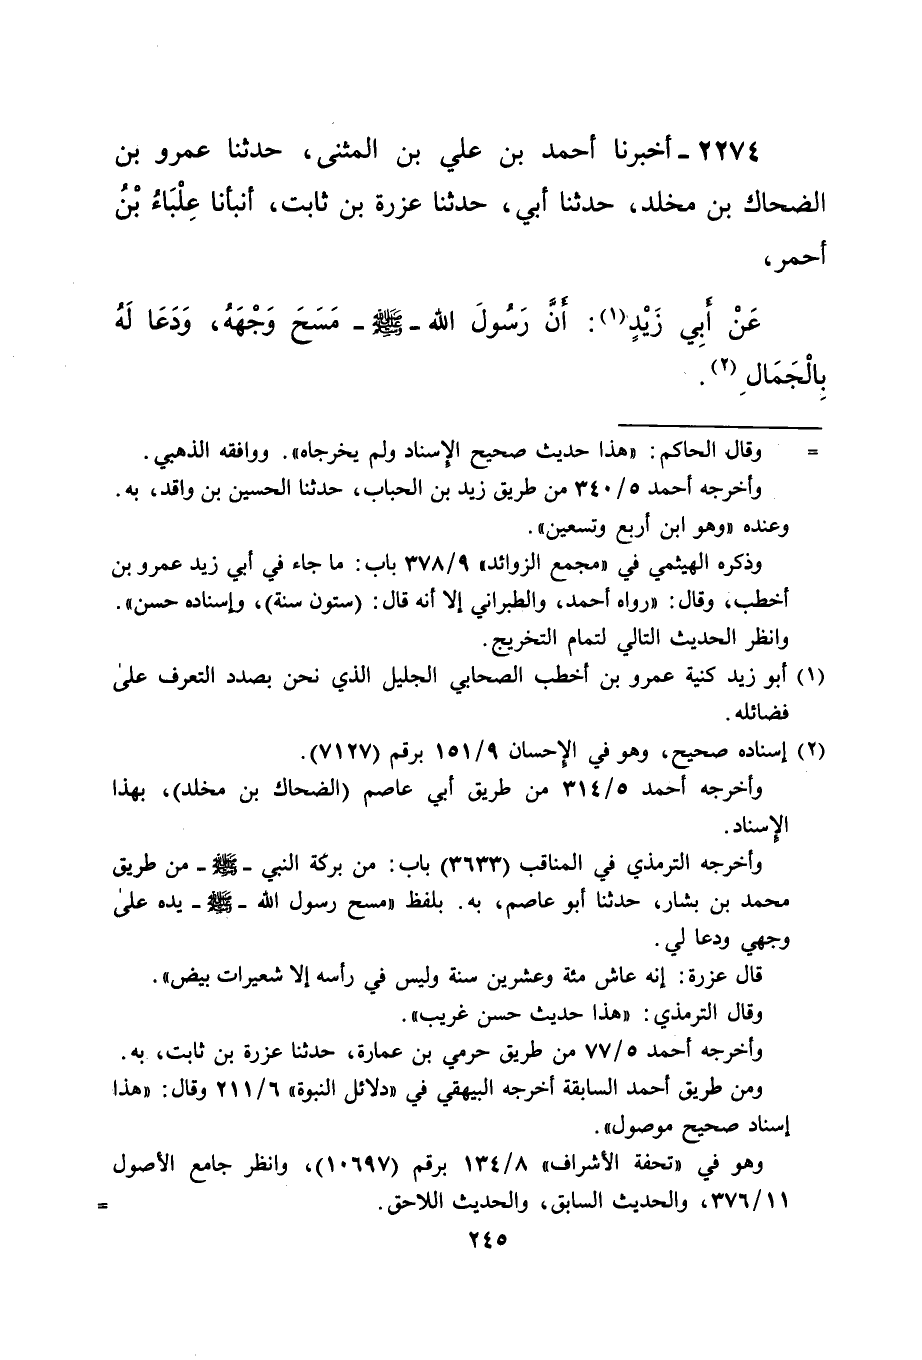 ٢٢٧٤ - أخبرنا أحمد بن علي بن المثنى، حدثنا عمرو بن
الضحاك بن مخلد، حدثنا أبي، حدثنا عزرة بن ثابت، أنبأنا عِلْبَاءُ بْنُ
أحمر،
عَنْ أَبِي زَيْدٍ(١): أَنَّ رَسُولَ الله - ﷺ - مَسَحَ وَجْهَهُ، وَدَعَا لَهُ
بِالْجَمَالِ(٢).
= وقال الحاكم: «هذا حديث صحيح الإسناد ولم يخرجاه». ووافقه الذهبي.
وأخرجه أحمد ٣٤٠/٥ من طريق زيد بن الحباب، حدثنا الحسين بن واقد، به.
وعنده «وهو ابن أربع وتسعين».
وذكره الهيثمي في «مجمع الزوائد» ٣٧٨/٩ باب: ما جاء في أبي زيد عمرو بن
أخطب، وقال: «رواه أحمد، والطبراني إلا أنه قال: (ستون سنة)، وإسناده حسن».
وانظر الحديث التالي لتمام التخريج.
(١) أبو زيد كنية عمرو بن أخطب الصحابي الجليل الذي نحن بصدد التعرف علىٰ
فضائله.
(٢) إسناده صحيح، وهو في الإحسان ١٥١/٩ برقم (٧١٢٧).
وأخرجه أحمد ٣١٤/٥ من طريق أبي عاصم (الضحاك بن مخلد)، بهذا
الإسناد.
وأخرجه الترمذي في المناقب (٣٦٣٣) باب: من بركة النبي - ﷺ - من طريق
محمد بن بشار، حدثنا أبو عاصم، به. بلفظ «مسح رسول الله - ﷺ - يده علىٰ
وجهي ودعا لي.
قال عزرة: إنه عاش مئة وعشرين سنة وليس في رأسه إلا شعيرات بيض».
وقال الترمذي: «هذا حديث حسن غريب».
وأخرجه أحمد ٧٧/٥ من طريق حرمي بن عمارة، حدثنا عزرة بن ثابت، به.
ومن طريق أحمد السابقة أخرجه البيهقي في «دلائل النبوة» ٢١١/٦ وقال: «هذا
إسناد صحيح موصول».
وهو في «تحفة الأشراف» ١٣٤/٨ برقم (١٠٦٩٧)، وانظر جامع الأصول
٣٧٦/١١، والحديث السابق، والحديث اللاحق. =
٢٤٥